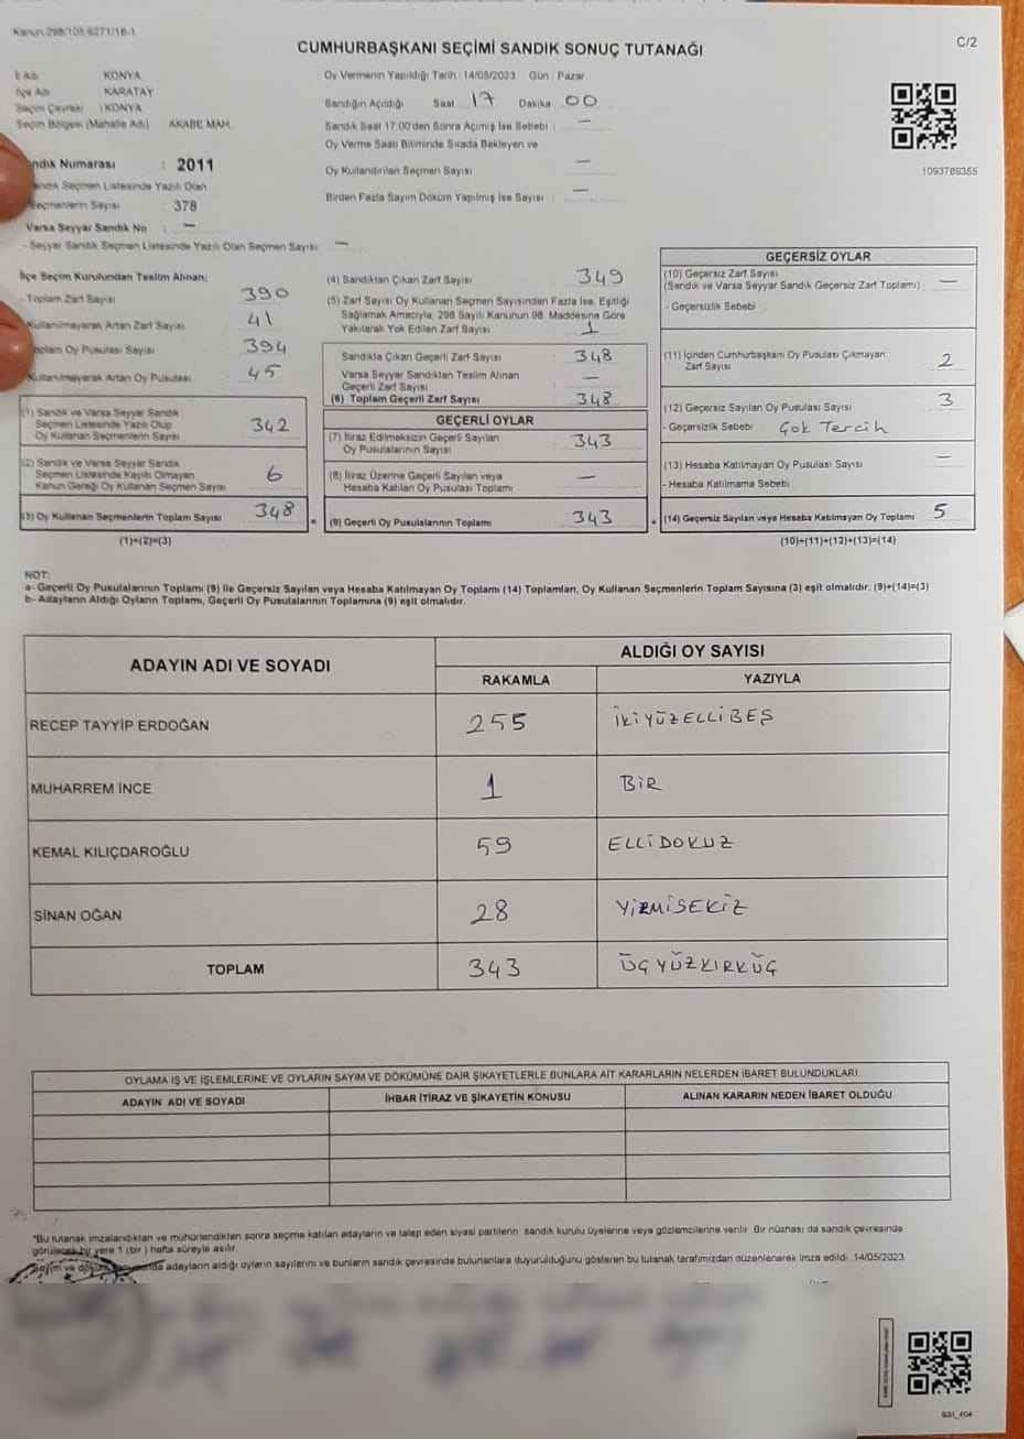 Kanun:298/105 6271/18-1
CUMHURBAŞKANI SEÇİMİ SANDIK SONUÇ TUTANAĞI
C/2
İl Adı KONYA
İlçe Adı KARATAY
Seçim Çevresi : KONYA
Seçim Bölgesi (Mahalle Adı) AKABE MAH.
Sandık Numarası : 2011
Sandık Seçmen Listesinde Yazılı Olan
Seçmenlerin Sayısı 378
Varsa Seyyar Sandık No : —
- Seyyar Sandık Seçmen Listesinde Yazılı Olan Seçmen Sayısı —
Oy Vermenin Yapıldığı Tarih : 14/05/2023 Gün : Pazar
Sandığın Açıldığı Saat 17 Dakika 00
Sandık Saat 17:00'den Sonra Açılmış İse Sebebi : —
Oy Verme Saati Bitiminde Sırada Bekleyen ve
Oy Kullandırılan Seçmen Sayısı —
Birden Fazla Sayım Döküm Yapılmış İse Sayısı : —
1093789355
İlçe Seçim Kurulundan Teslim Alınan;
- Toplam Zarf Sayısı 390
Kullanılmayarak Artan Zarf Sayısı 41
Toplam Oy Pusulası Sayısı 394
Kullanılmayarak Artan Oy Pusulası 45
(1) Sandık ve Varsa Seyyar Sandık
Seçmen Listesinde Yazılı Olup
Oy Kullanan Seçmenlerin Sayısı 342
(2) Sandık ve Varsa Seyyar Sandık
Seçmen Listesinde Kayıtlı Olmayan
Kanun Gereği Oy Kullanan Seçmen Sayısı 6
(3) Oy Kullanan Seçmenlerin Toplam Sayısı 348
(1)+(2)=(3)
(4) Sandıktan Çıkan Zarf Sayısı 349
(5) Zarf Sayısı Oy Kullanan Seçmen Sayısından Fazla İse, Eşitliği
Sağlamak Amacıyla, 298 Sayılı Kanunun 98. Maddesine Göre
Yakılarak Yok Edilen Zarf Sayısı 1
Sandıkla Çıkan Geçerli Zarf Sayısı 348
Varsa Seyyar Sandıktan Teslim Alınan
Geçerli Zarf Sayısı —
(6) Toplam Geçerli Zarf Sayısı 348
GEÇERLİ OYLAR
(7) İtiraz Edilmeksizin Geçerli Sayılan
Oy Pusulalarının Sayısı 343
(8) İtiraz Üzerine Geçerli Sayılan veya
Hesaba Katılan Oy Pusulası Toplamı —
(9) Geçerli Oy Pusulalarının Toplamı 343
GEÇERSİZ OYLAR
(10) Geçersiz Zarf Sayısı
(Sandık ve Varsa Seyyar Sandık Geçersiz Zarf Toplamı) —
- Geçersizlik Sebebi
(11) İçinden Cumhurbaşkanı Oy Pusulası Çıkmayan
Zarf Sayısı 2
(12) Geçersiz Sayılan Oy Pusulası Sayısı 3
- Geçersizlik Sebebi Çok Tercih
(13) Hesaba Katılmayan Oy Pusulası Sayısı —
- Hesaba Katılmama Sebebi
(14) Geçersiz Sayılan veya Hesaba Katılmayan Oy Toplamı 5
(10)+(11)+(12)+(13)=(14)
NOT:
a- Geçerli Oy Pusulalarının Toplamı (9) ile Geçersiz Sayılan veya Hesaba Katılmayan Oy Toplamı (14) Toplamları, Oy Kullanan Seçmenlerin Toplam Sayısına (3) eşit olmalıdır. (9)+(14)=(3)
b- Adayların Aldığı Oyların Toplamı, Geçerli Oy Pusulalarının Toplamına (9) eşit olmalıdır.
ADAYIN ADI VE SOYADI
ALDIĞI OY SAYISI
RAKAMLA YAZIYLA
RECEP TAYYİP ERDOĞAN 255 İKİYÜZELLİBEŞ
MUHARREM İNCE 1 BİR
KEMAL KILIÇDAROĞLU 59 ELLİDOKUZ
SİNAN OĞAN 28 YİRMİSEKİZ
TOPLAM 343 ÜÇYÜZKIRKÜÇ
OYLAMA İŞ VE İŞLEMLERİNE VE OYLARIN SAYIM VE DÖKÜMÜNE DAİR ŞİKAYETLERLE BUNLARA AİT KARARLARIN NELERDEN İBARET BULUNDUKLARI
ADAYIN ADI VE SOYADI İHBAR İTİRAZ VE ŞİKAYETİN KONUSU ALINAN KARARIN NEDEN İBARET OLDUĞU
*Bu tutanak imzalandıktan ve mühürlendikten sonra seçime katılan adayların ve talep eden siyasi partilerin sandık kurulu üyelerine veya gözlemcilerine verilir. Bir nüshası da sandık çevresinde
görülecek bir yere 1 (bir) hafta süreyle asılır.
Sayım ve döküm adayların aldığı oyların sayılarını ve bunların sandık çevresinde bulunanlara duyurulduğunu gösteren bu tutanak tarafımızdan düzenlenerek imza edildi. 14/05/2023